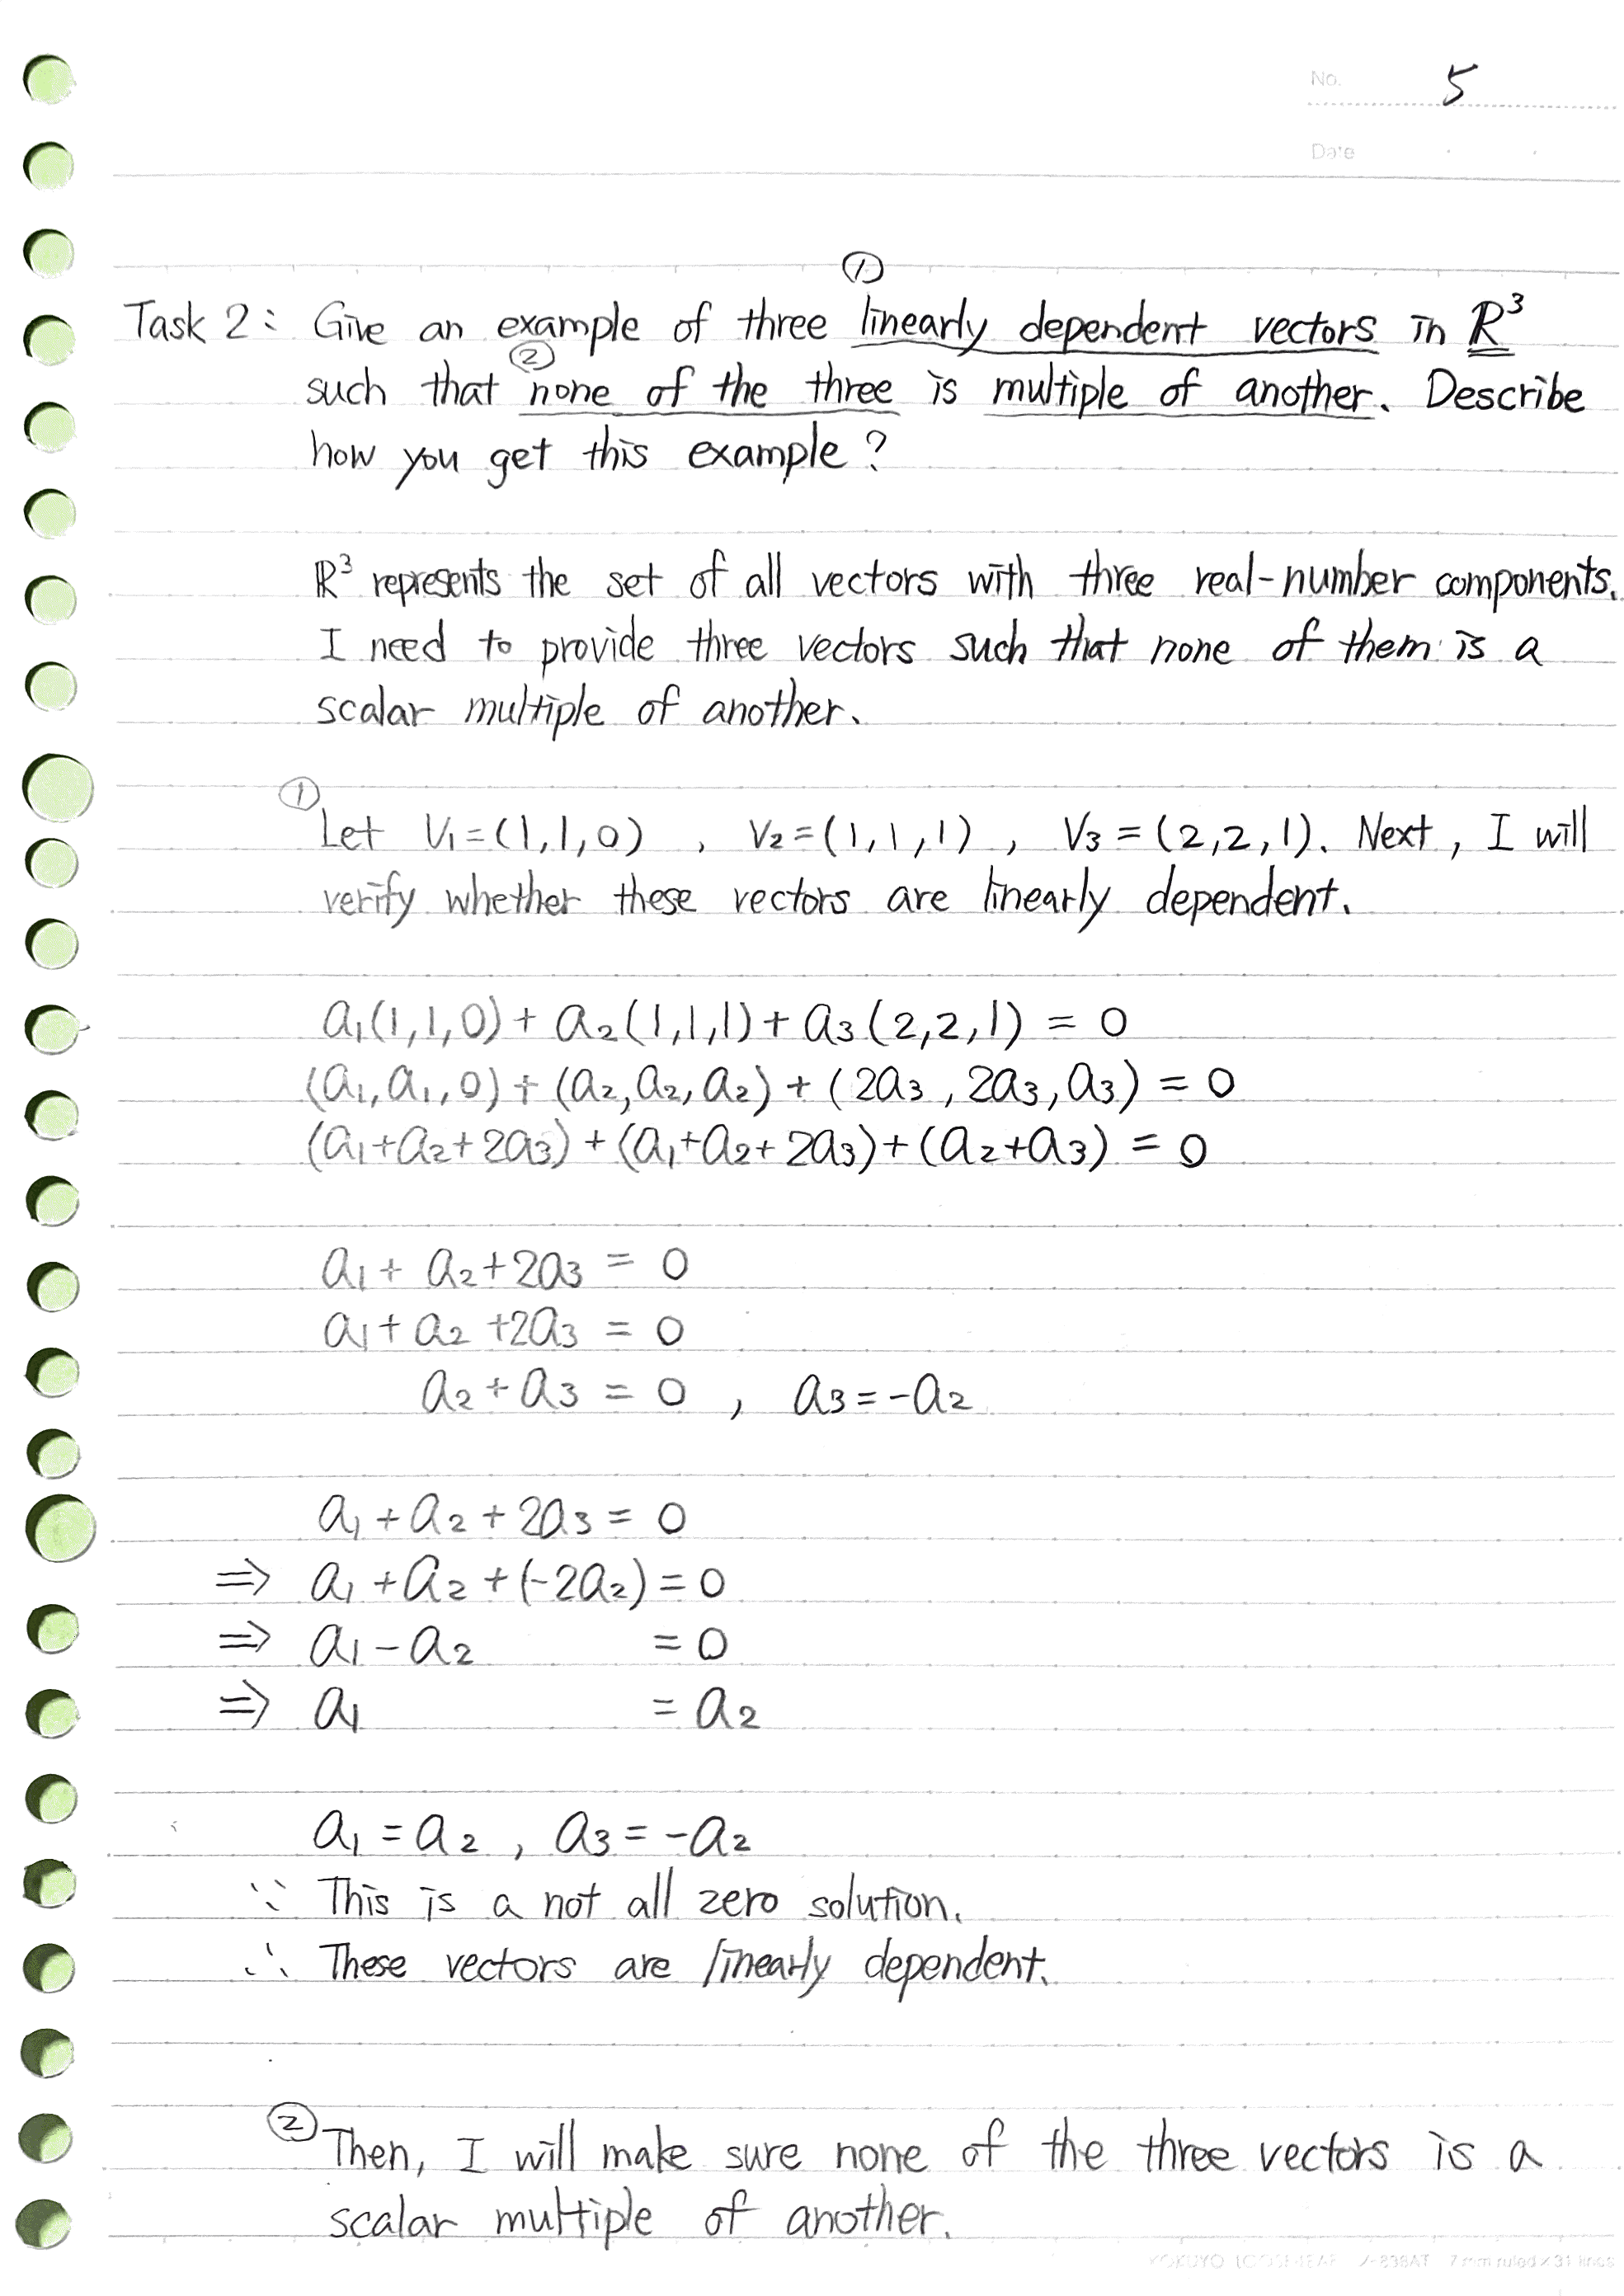 No. 5
Date
①
Task 2: Give an example of three linearly dependent vectors in ℝ³
②
such that none of the three is multiple of another. Describe
how you get this example?
ℝ³ represents the set of all vectors with three real-number components.
I need to provide three vectors such that none of them is a
scalar multiple of another.
①
Let V₁=(1,1,0) , V₂=(1,1,1) , V₃=(2,2,1). Next, I will
verify whether these vectors are linearly dependent.
a₁(1,1,0)+a₂(1,1,1)+a₃(2,2,1) = 0
(a₁,a₁,0)+(a₂,a₂,a₂)+(2a₃,2a₃,a₃) = 0
(a₁+a₂+2a₃)+(a₁+a₂+2a₃)+(a₂+a₃) = 0
a₁+a₂+2a₃ = 0
a₁+a₂+2a₃ = 0
a₂+a₃ = 0 , a₃=-a₂
a₁+a₂+2a₃ = 0
⇒ a₁+a₂+(-2a₂) = 0
⇒ a₁-a₂ = 0
⇒ a₁ = a₂
a₁=a₂, a₃=-a₂
∵ This is a not all zero solution.
∴ These vectors are linearly dependent.
② Then, I will make sure none of the three vectors is a
scalar multiple of another.
7 mm ruled × 31 lines